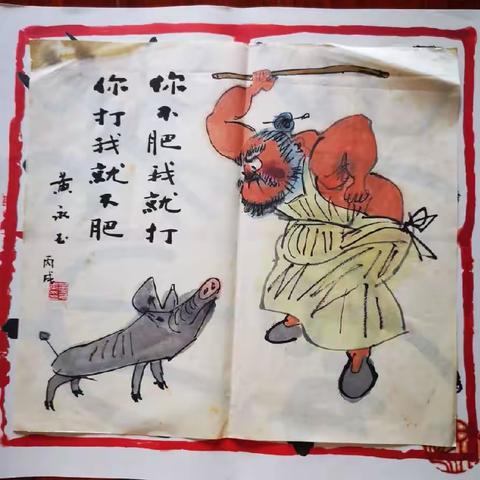 你不肥我就打
你打我就不肥
黄永玉
丙戌